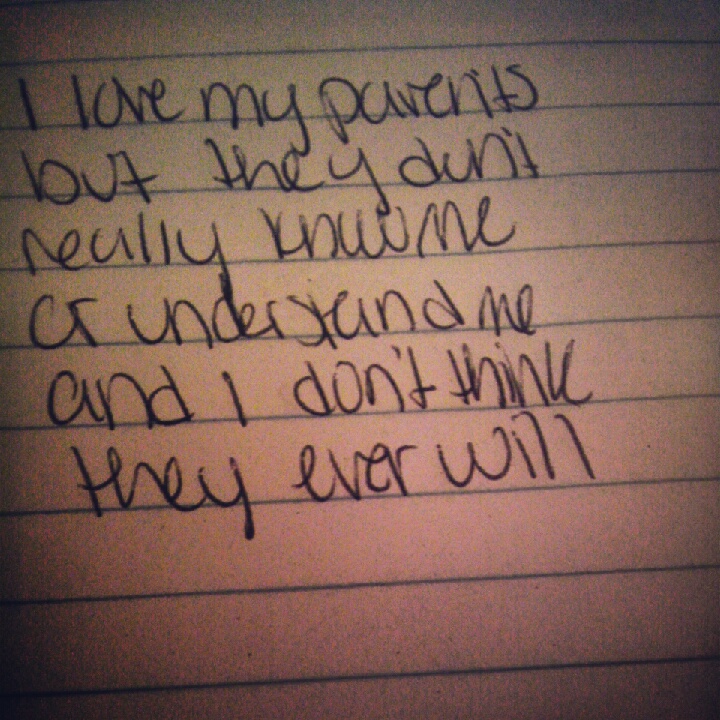 I love my parents
but they don't
really know me
or understand me
and I don't think
they ever will